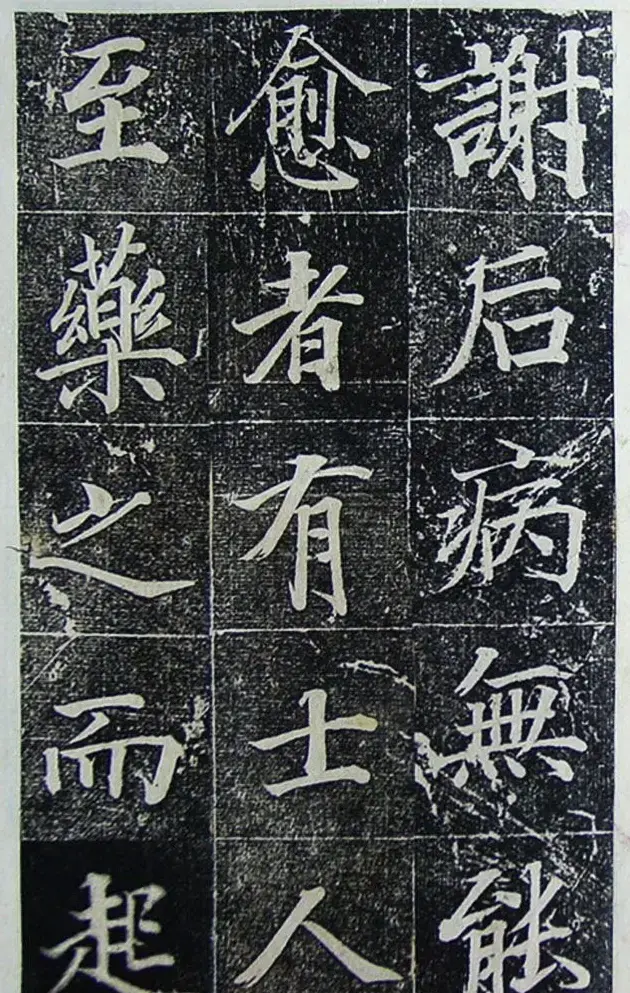 謝后病無能
愈者有士人
至藥之而起